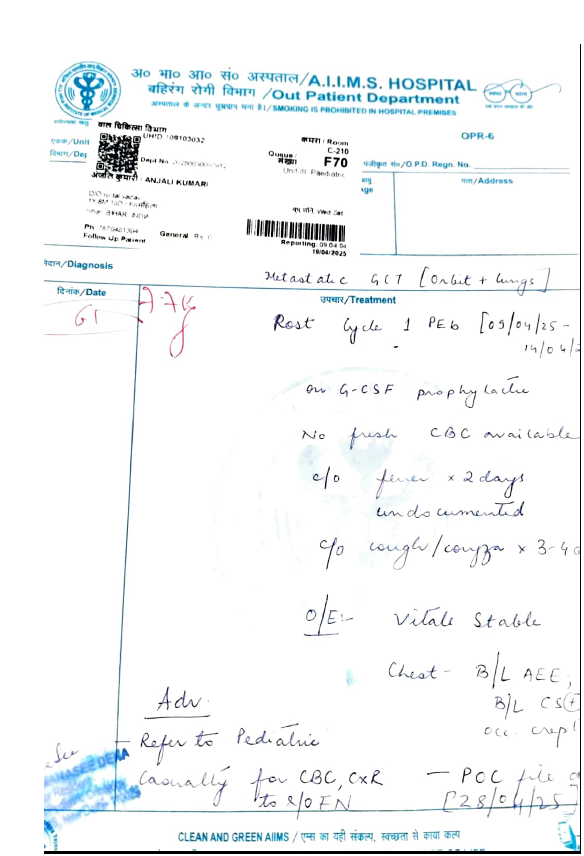 अ० भा० आ० सं० अस्पताल/A.I.I.M.S. HOSPITAL
बहिरंग रोगी विभाग /Out Patient Department
अस्पताल के अन्दर धूम्रपान मना है।/SMOKING IS PROHIBITED IN HOSPITAL PREMISES
OPR-6
एकक/Unit
विभाग/Dep
बाल चिकित्सा विभाग
UHID
Dept No
ANJALI KUMARI
BIHAR
Ph:
Follow Up Patient
General
कमरा / Room
C-210
Queue /
संख्या
F70
Unit-III Paediatric
Wed Sat
Reporting:
10/04/2025
पंजीकृत सं०/O.P.D. Regn. No.
पता/Address
/Diagnosis
Metastatic GCT [Orbit + lungs]
दिनांक/Date
उपचार/Treatment
Post Cycle 1 PEb [09/04/25 -
14/04/2
on G-CSF prophylactic
No fresh CBC available
c/o fever x 2 days
undocumented
c/o cough/coryza x 3-4
O/E:- Vitals Stable
Chest - B/L AEE,
B/L CS(+
occ. crept
Adv.
- Refer to Pediatric
Casualty for CBC, CXR
to r/o FN
- POC file
[28/04/25]
CLEAN AND GREEN AIIMS / एम्स का यही संकल्प, स्वच्छता से काया कल्प